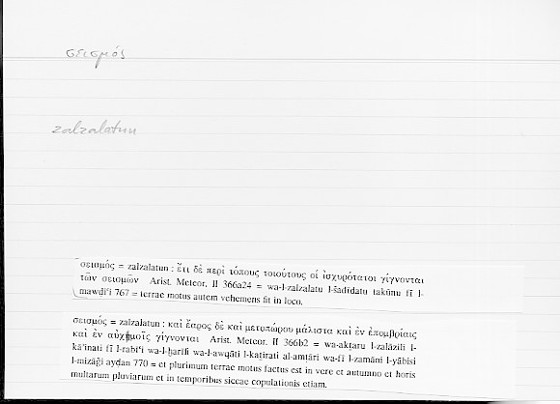 σεισμός
zalzalatun
σεισμός = zalzalatun : ἔτι δὲ περὶ τόπους τοιούτους οἱ ἰσχυρότατοι γίγνονται
τῶν σεισμῶν Arist. Meteor. II 366a24 = wa-l-zalzalatu l-šadīdatu takūnu fī l-
mawḍiʿi 767 = terrae motus autem vehemens fit in loco.
σεισμός = zalzalatun : καὶ ἔαρος δὲ καὶ μετοπώρου μάλιστα καὶ ἐν ἐπομβρίαις
καὶ ἐν αὐχμοῖς γίγνονται Arist. Meteor. II 366b2 = wa-akṯaru l-zalāzili l-
kāʾinati fī l-rabīʿi wa-l-ḫarīfi wa-l-awqāti l-kaṯīrati al-amṭāri wa-fī l-zamāni l-yābisi
l-mizāǧi ayḍan 770 = et plurimum terrae motus factus est in vere et autumno et horis
multarum pluviarum et in temporibus siccae copulationis etiam.